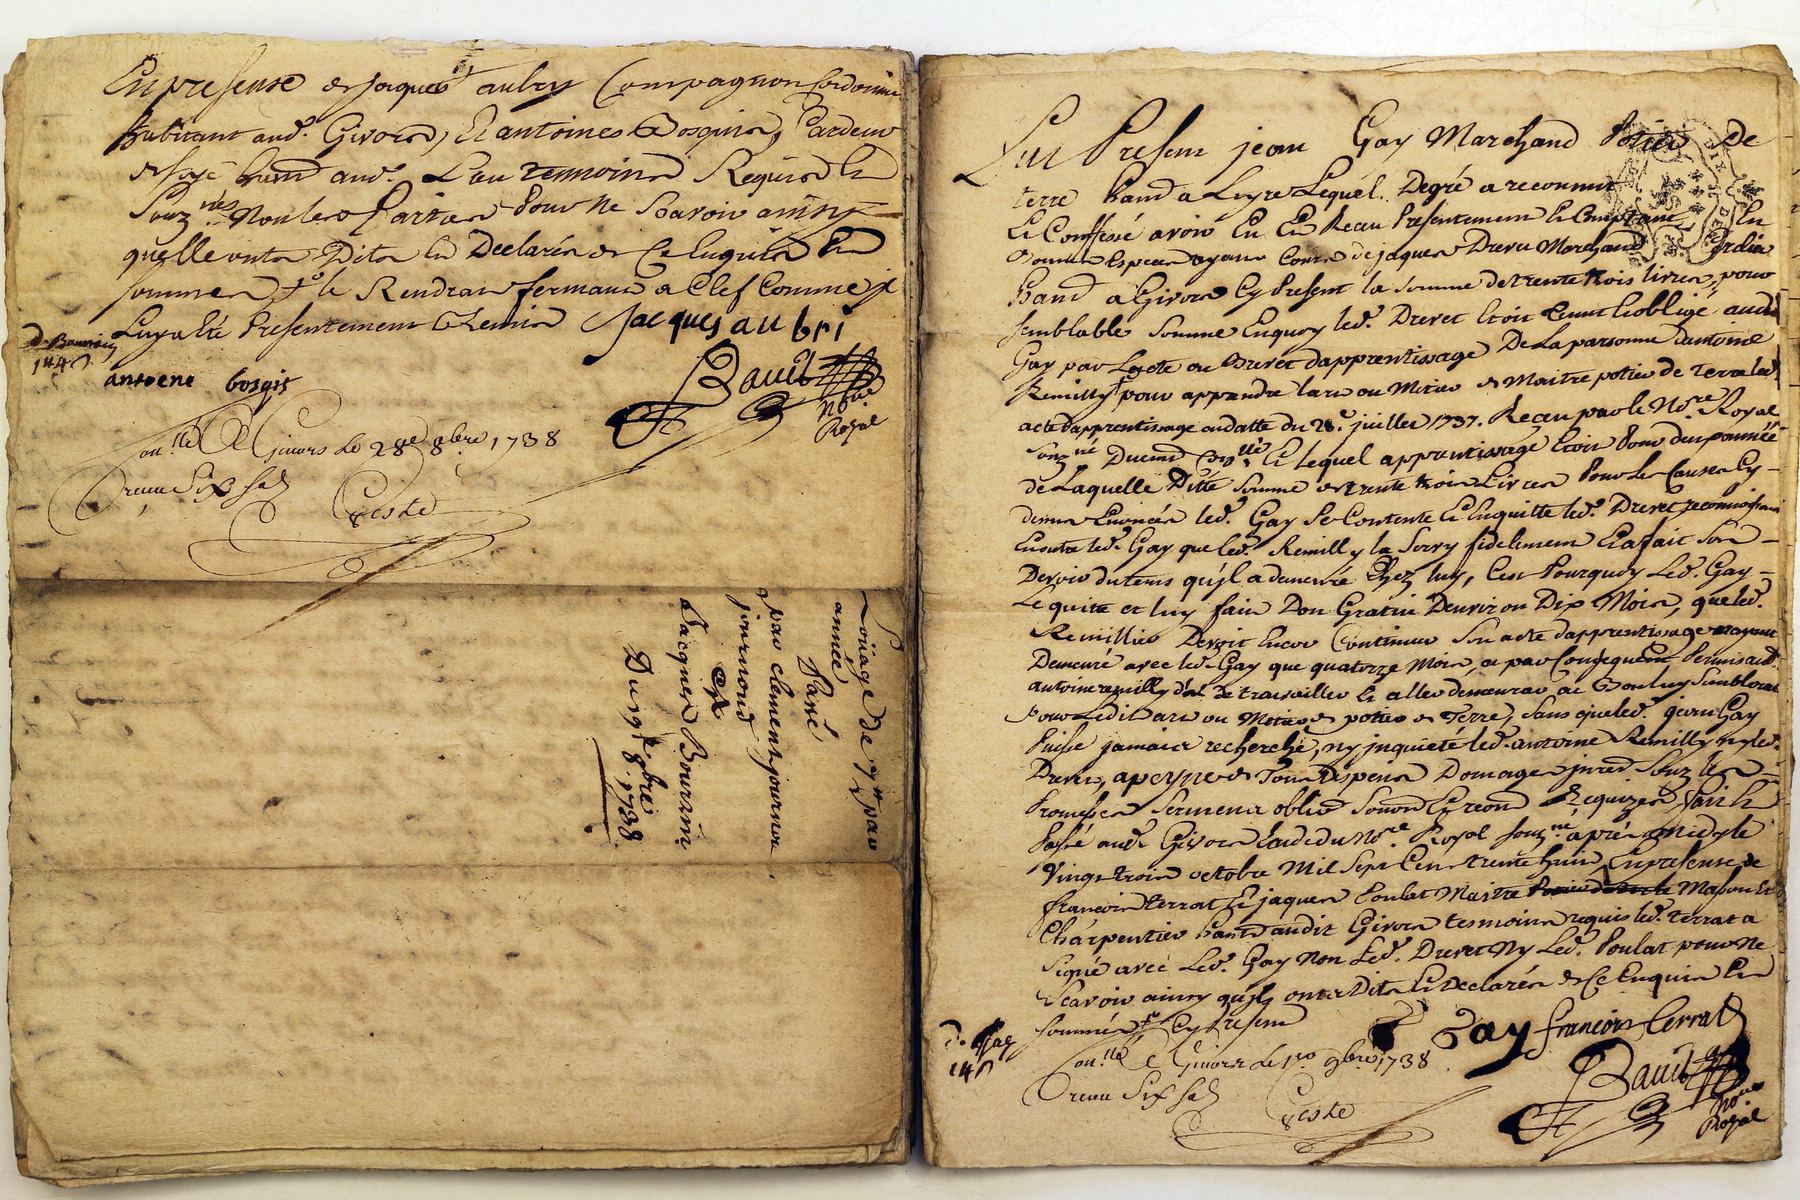 En presense de Jacques aubry Compagnon Cordonnier
habitant aud. Givors, Et antoines Bosgira, Cardeur
de soye habitt aud. Lieu temoins Requis Et
Souz nés Non les Parties Pour ne Scavoir ainsy
quelle onts Dits Et Declarés de Ce Enquis Et
sommes, le Rendra fermant a Clef Comme il
Luy a été Presentement Remis Jacques aubri
antoene bosgis
Bavib
Nore
Royal
Conllé A Givors Le 28e 8bre 1738
Receu Six sols
Geste
Loüage de 7 n par
année
Passé
par clement journer
journoud
Et
Jacques Bourrin
Du 19e 8bre
1738
Fut Present jean Gay Marchand Potier de
terre habitt a Loyre Lequel. De gré a reconnu
Et Confessé avoir Eu Et Receu Presentement Et Comptant En
Bonnes Especes ayant Cours de jaques Drevet Marchand
habitt a Givors Cy Present la Somme de trente trois livres, pour
semblable Somme Enquoy led. Drevet Etoit tenut Et obligé aud.
Gay par Lacte ou Brevet dapprentissage De La parsonne dantoine
Remilly pour apprendre lart ou Metier de Maitre potier de terre led.
acte dapprentissage en datte du 28e juillet 1737. Receu par le Nore Royal
Souzné Duement Conllé Et lequel apprentissage Etoit Pour deux années
de Laquelle Ditte Somme de trente trois Livres Pour les Causes Cy
dessus Enoncés led. Gay Se Contente Et Enquitte led. Drevet reconnoissant
En outre led. Gay que led. Remilly la Servy fidelement Et a fait Son
Devoir du tems qu'jl a demeuré Chez luy, C'est Pourquoy Led. Gay
Le quitte et luy fait Don Gratuit Denviron Dix Mois, que led.
Remillier Devoit Encor Continuer Son acte dapprentissage nayant
Demeuré avec led. Gay que quatorze Mois, a par Consequent Permis aud.
antoine remilly d'al de travailler Et aller demeurer ou Bon luy Semblerat
pour Ledit art ou Metier de potier de Terre, Sans que led. jean Gay
Puisse jamais recherché, ny jnquieté led. antoine Remilly ny led.
Drevet, a peyne de Tous Depens Domages jnrets Souz les
Promesses Serments oblios Soumons Et renons Requizes, fait Et
Passé aud. Givors Etude du Nore Royal souzné aprés midy le
Vingt trois octobre Mil Sept Cent trente huit, En presense de
francois terrat Et jaques Poulat Maitre Mason Et
Charpentier habitts audit Givors tesmoins requis led. terrat a
Signé avec Led. Gay Non Led. Drevet Ny Led. Poulat pour Ne
Scavoir ainsy qu'jls onts Dits Et Declarés de Ce Enquis Et
sommés Cy Present
Gay francois terrat
Bavib
Nore
Royal
Conllé A Givors le 1er 9bre 1738
Receu Six sols
Geste